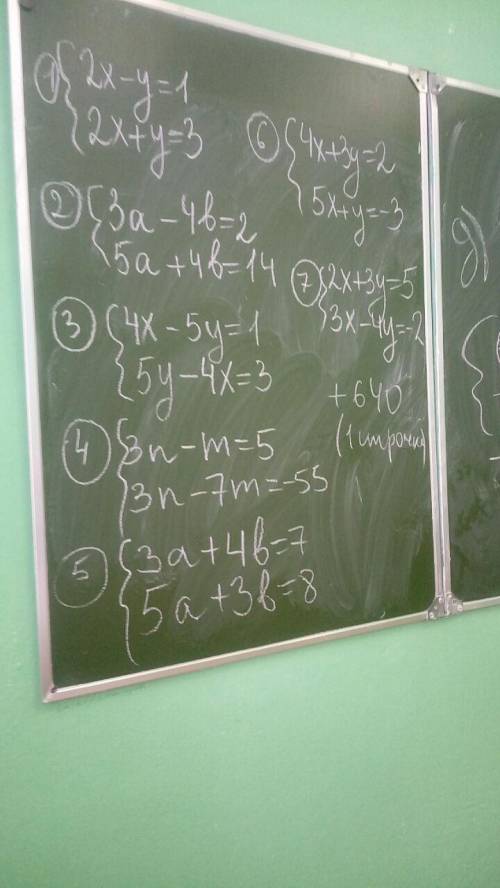 1 2x-y=1
2x+y=3
2 3a-4b=2
5a+4b=14
3 4x-5y=1
5y-4x=3
4 3n-m=5
3n-7m=-55
5 3a+4b=7
5a+3b=8
6 4x+3y=2
5x+y=-3
7 2x+3y=5
3x-4y=-2
+640
(1 строчка)
g)